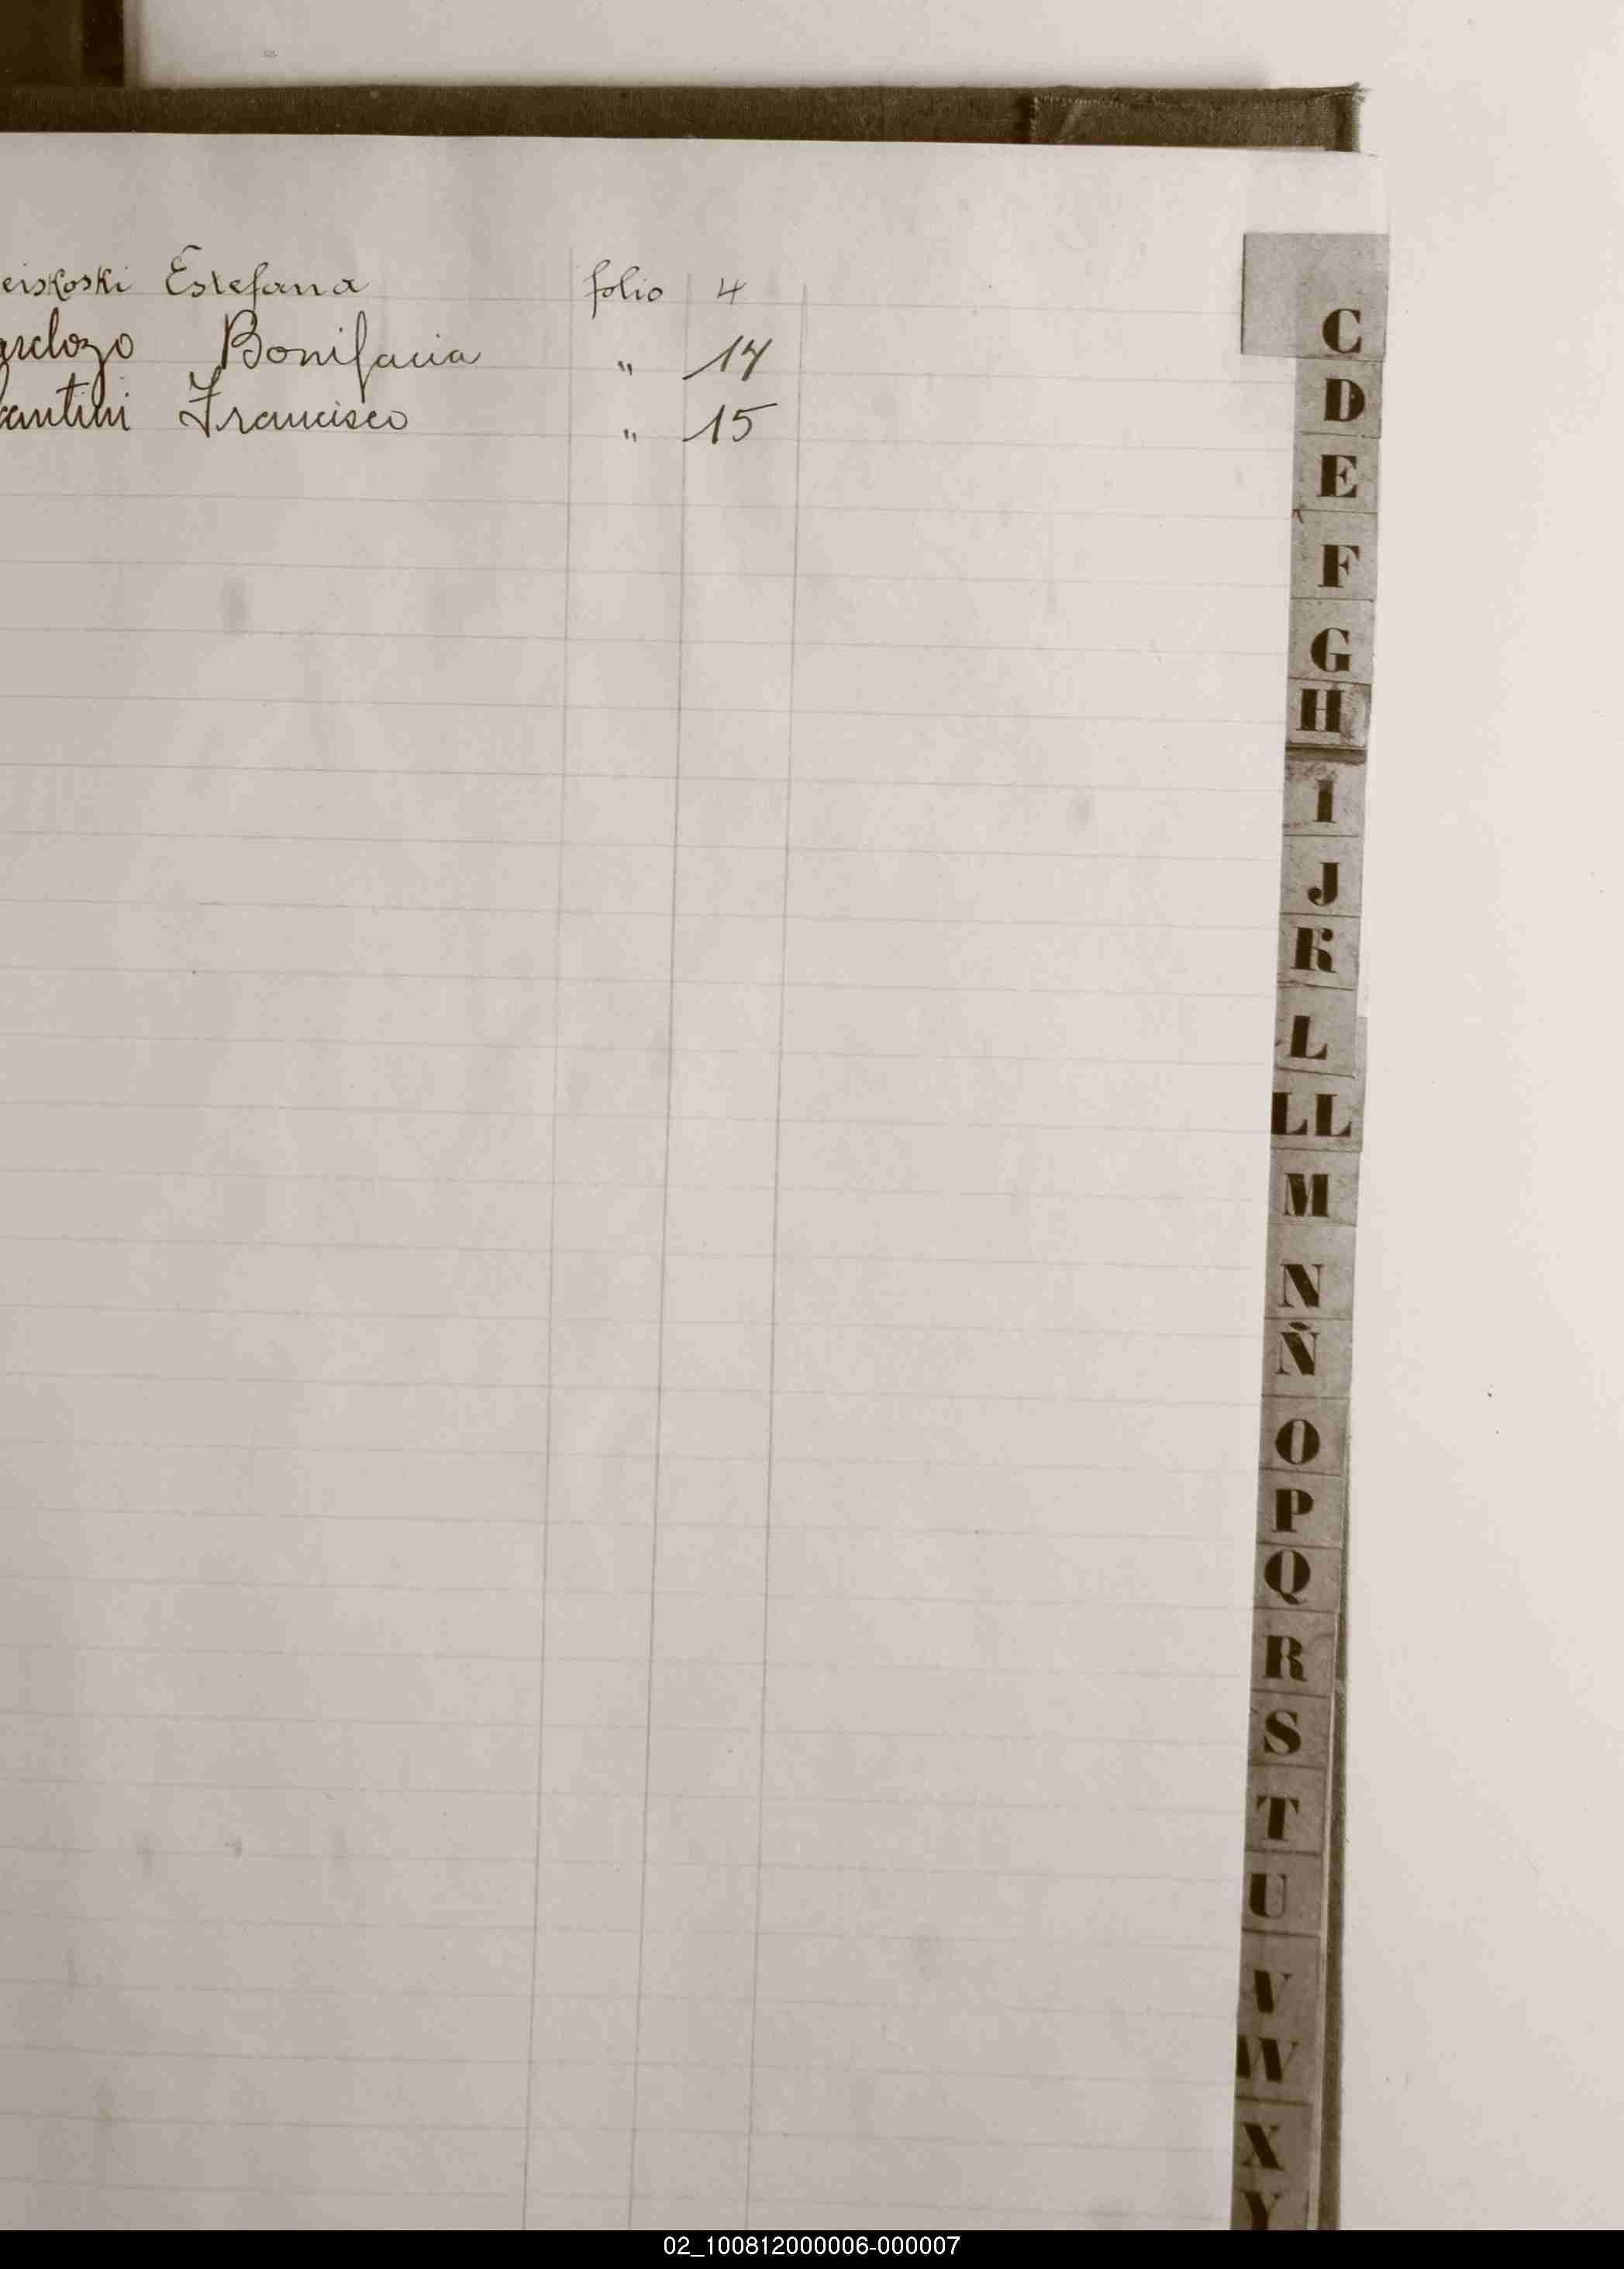 eiskoski Estefana folio 4
ardozo Bonifacia " 14
cantini Francisco " 15
C
D
E
F
G
H
I
J
K
L
LL
M
N
Ñ
O
P
Q
R
S
T
U
V
W
X
Y
02_100812000006-000007